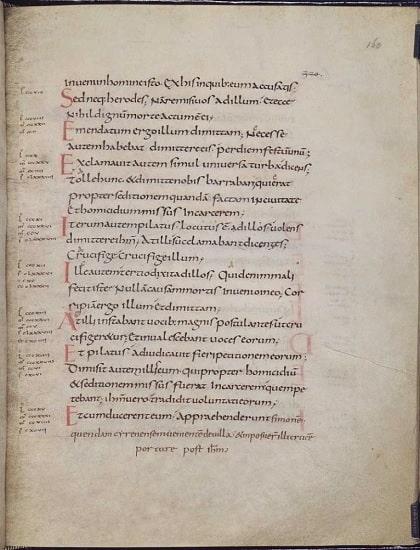 160
inuenio in homine isto ex his in quib: eum accusatis;
Sed neq; herodes; Nam remisi uos ad illum; Et ecce
Nihil dignum morte actum e ei;
Emendatum ergo illum dimittam; Necesse
autem habebat dimittere eis; per diem festum unum;
Exclamauit autem simul uniuersa turba dicens;
Tolle hunc & dimitte nobis barraban; qui erat
propter seditionem quandam factam in ciuitate
et homicidium missus in carcerem;
Iterum autem pilatus locutus e ad illos uolens
dimittere ihm; At illi succlamabant dicentes;
Crucifige Crucifige illum;
Ille autem tertio dixit ad illos; Quid enim mali
fecit iste; Nullam causam mortis inuenio in eo; Cor
ripiam ergo illum et dimittam;
At illi instabant uocib: magnis postulantes ut cru
cifigeretur; et inualescebant uoces eorum;
Et pilatus adiudicauit fieri petitionem eorum;
Dimisit autem illis eum qui propter homicidium
& seditionem missus fuerat in carcerem quem pe
tebant; ihm uero tradidit uoluntati eorum;
Et cum ducerent eum; Appraehenderunt simone
quendam cyrenensem uenientem de uilla & imposuer illi cruce
portare post ihm;